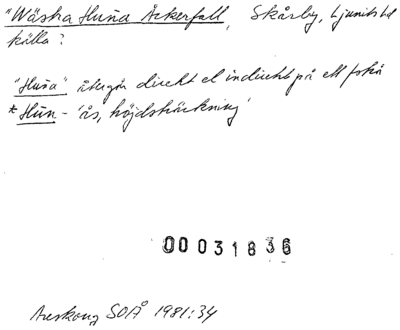 "Wäska Huña Åckerfall", Skårby, Ljunits hd
källa?
"Huña" återgår direkt el indirekt på ett
*Hūn - 'ås, höjdsträckning'
00031836
SOÅ 1981:34